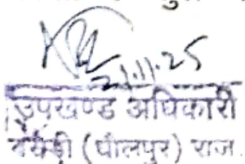 21.11.25
उपखण्ड अधिकारी
बसेड़ी (धौलपुर) राज.